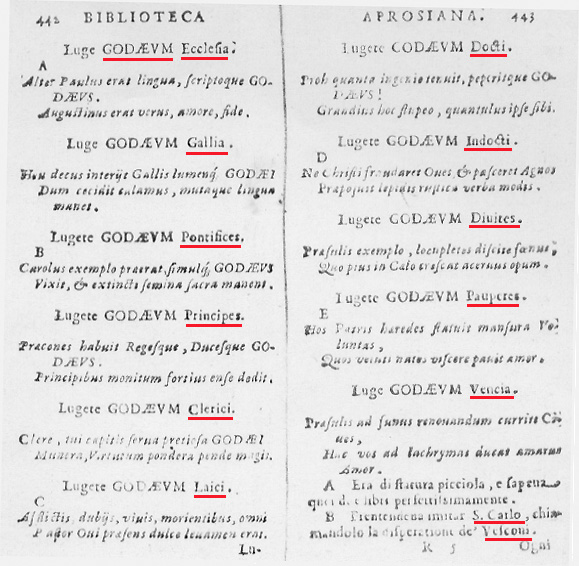 442 BIBLIOTECA
Luge GODÆVM Ecclesia.
A
Alter Paulus erat lingua, scriptoque GO-
DÆVS.
Augustinus erat verus, amore, fide.
Luge GODÆVM Gallia.
Heu decus interijt Gallis lumenq; GODÆI
Dum cecidit calamus, mutaque lingua
manet.
Lugete GODÆVM Pontifices.
B
Carolus exemplo praerat, simulq; GODÆVS
Vixit, & extincti semina sacra manent.
Lugete GODÆVM Principes.
Præcones habuit Regesque, Ducesque GO-
DÆVS.
Principibus monitum fortius ense dedit.
Lugete GODÆVM Clerici.
Clere, tui capitis serua pretiosa GODÆI
Munera, Virtutum pondera pende magis.
Lugete GODÆVM Laici.
C
Afflictis, dubijs, viuis, morientibus, omni
Pastor Oui præsens dulce leuamen erat.
Lu-
APROSIANA. 443
Lugete CODÆVM Docti.
Proh quanta ingenio tenuit, peperitque GO-
DÆVS!
Grandius hoc stupeo, quantulus ipse sibi.
Lugete GODÆVM Indocti.
D
Ne Christi fraudaret Oues, & pasceret Agnos
Præposuit lepidis rustica verba modis.
Lugete GODÆVM Diuites.
Præsulis exemplo, locupletes discite fænus,
Quo pius in Cælo crescat aceruus opum.
Lugete GODÆVM Pauperes.
E
Hos Patris hæredes statuit mansura Vo-
luntas,
Quos veluti natos viscere pauit amor.
Luge GODÆVM Vencia.
Præsulis ad funus renouandum currite
ues,
Huc vos ad lachrymas ducat amarus
Amor.
A Era di statura picciola, e sapeua
quei due libri perfettissimamente.
B Pretendeua imitar S. Carlo, chia-
mandolo la disperatione de' Vescoui.
R 5 Ogni